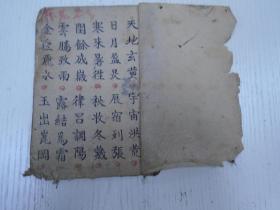 天地玄黃宇宙洪荒
日月盈昃辰宿列張
寒来暑徃秋收冬藏
閏餘成歲律呂調陽
雲騰致雨露結爲霜
金生麗水玉出崑岡